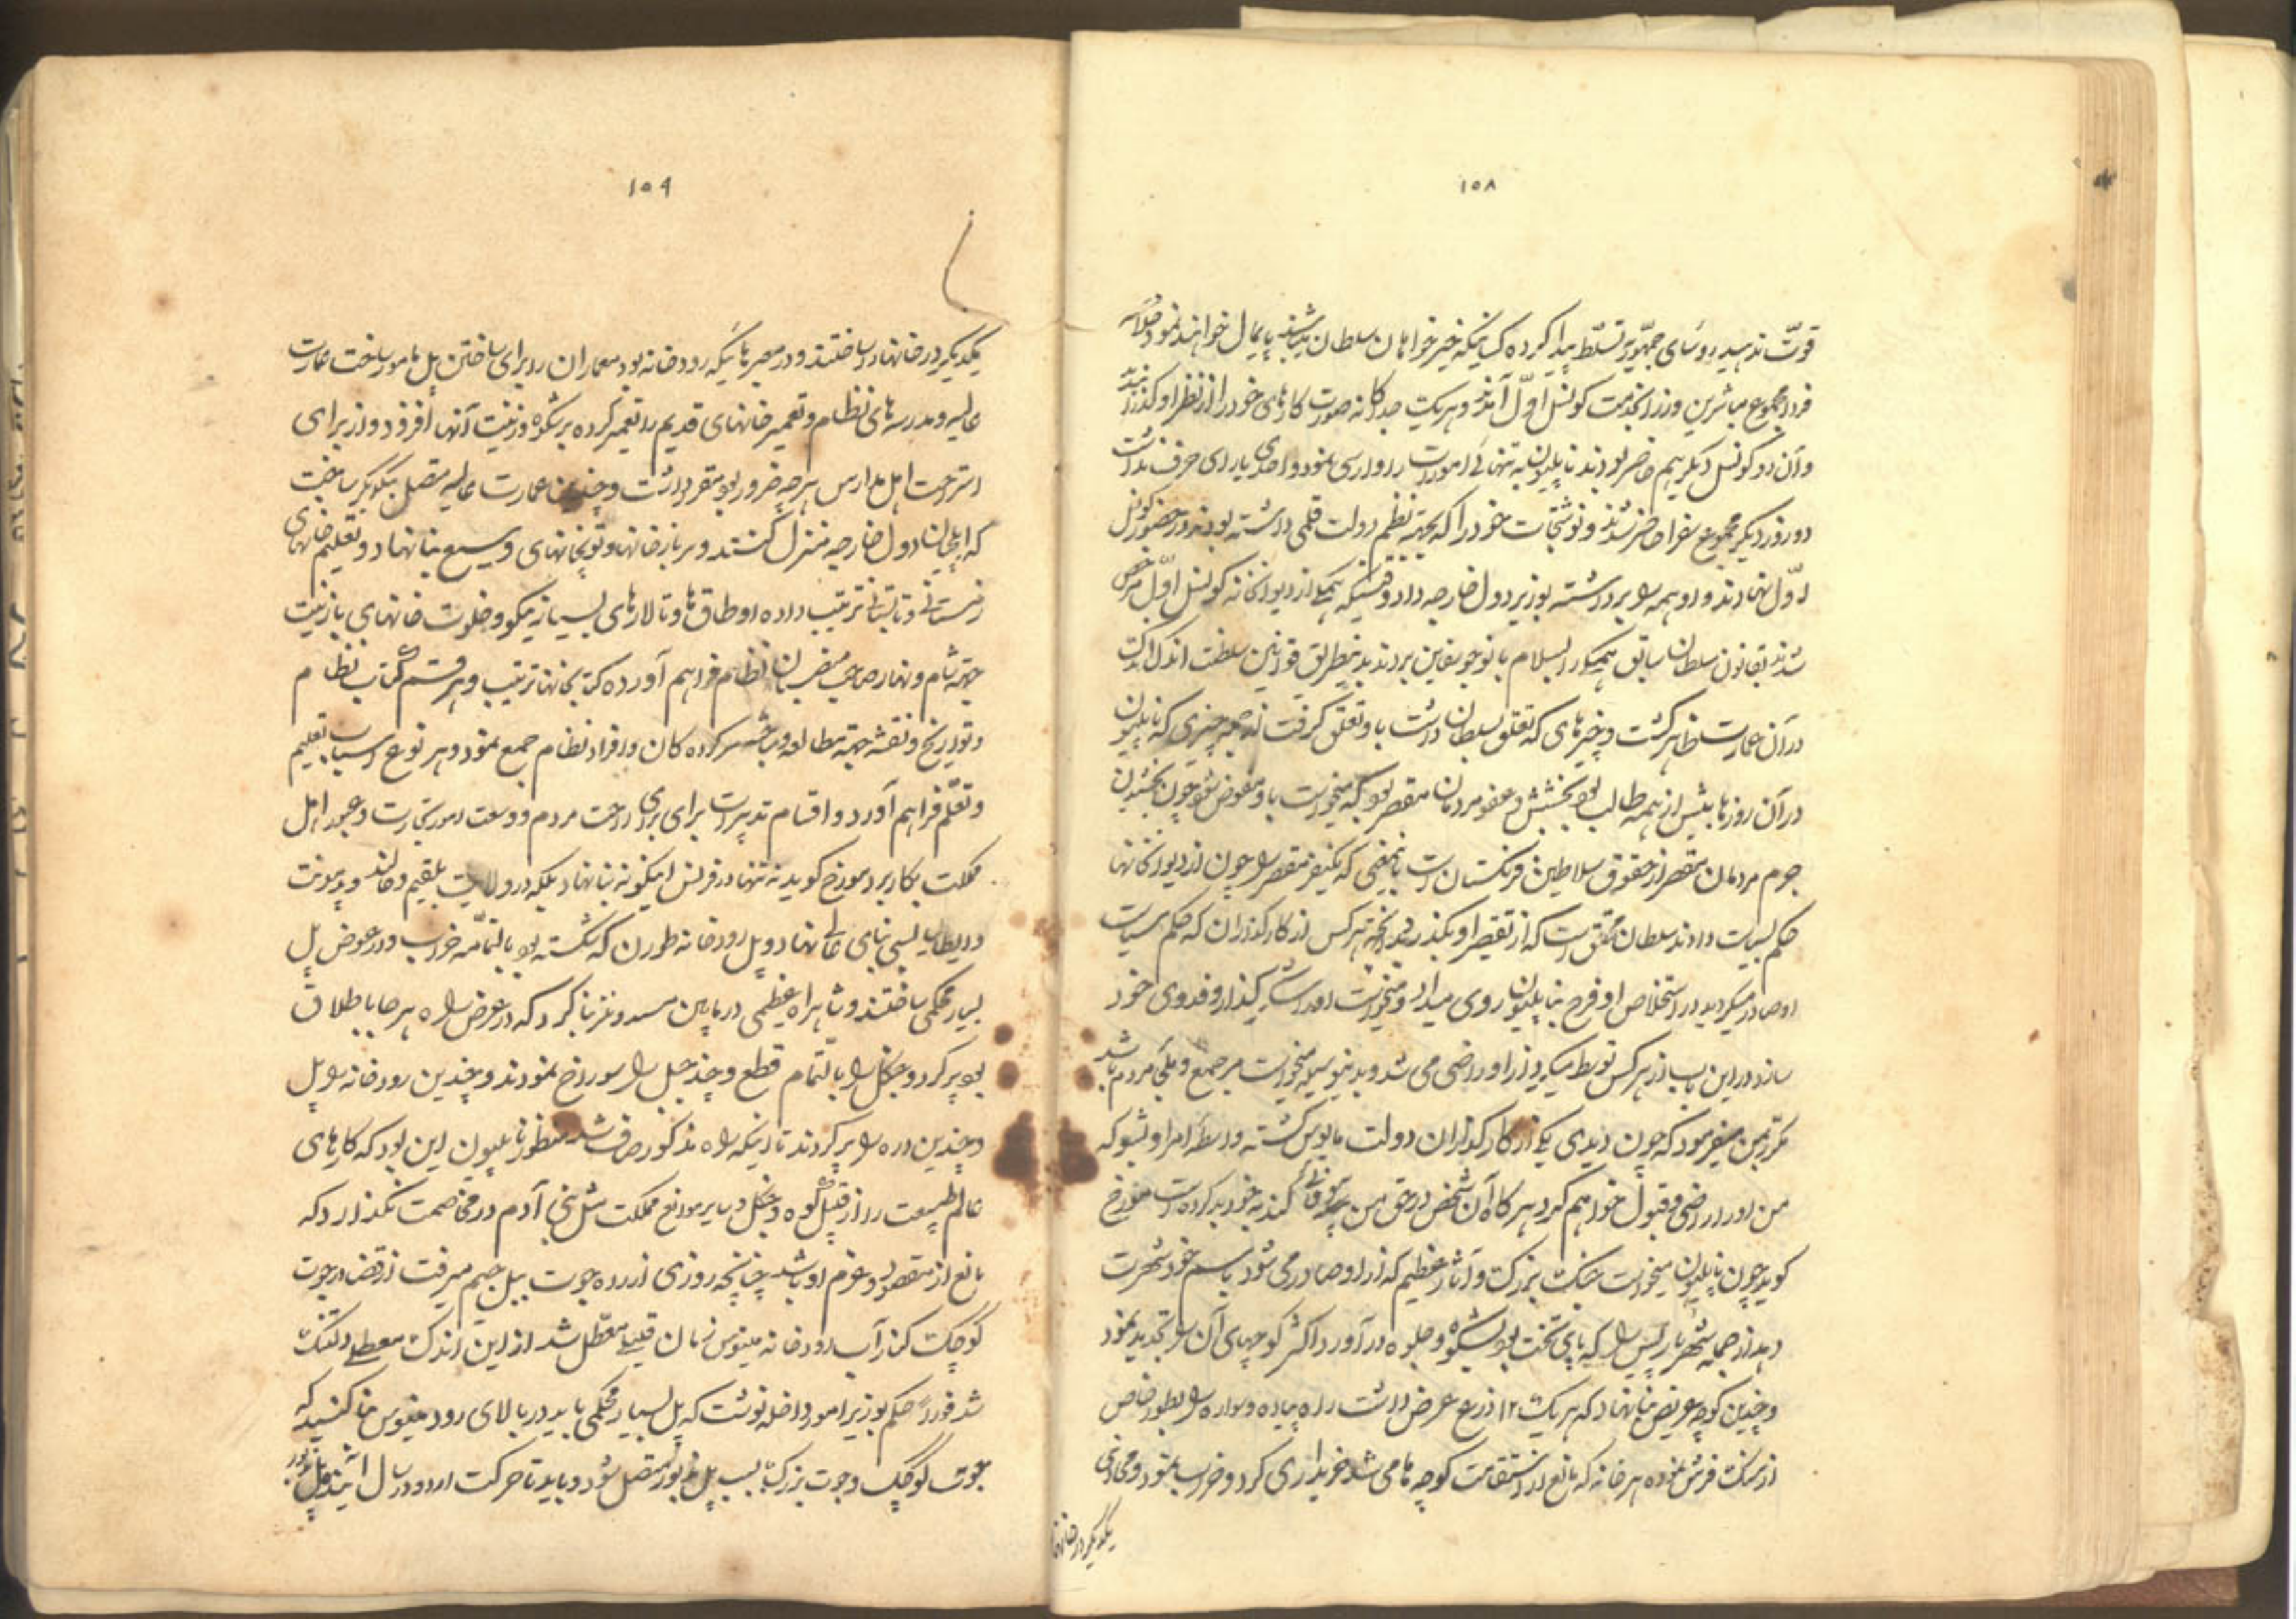 ۱۵۸
قوّت ندهید روسَای جمهّور تسلّط پیدا کرده کسانیکه خیرخواهان سلطان میباشند پایمال خواهند نمود خلاصه
فردا مجموع مباشرین و وزرا بخدمت کونسل اوّل آمدند و هریک جداکانه صورت کارهای خود را از نظر او کذرانیدند
و آن دو کونسل دیکر هم حاضر بودند ناپلیون به تنهائی امورات را وارسی نمود و احدی یارای حرف نداشت
دو روز دیکر مجموع سفرا حاضر شدند و نوشتجات خود را که بجهته نظم دولت قلمی داشته بودند در حضور کونسل
اوّل نهادند و او همه را برداشته بوزیر دول خارجه داد وقتیکه همکی از دیوانخانه کونسل اوّل مرخص
شدند بقانون سلطان سابق همیکی را بسلام بانو جوزفین بردند بدینطریق قوانین سلطنت اندک اندک
در آن عمارت ظاهر کشت و چیزهای که تعلق بسلطان داشت باو تعلق کرفت از جمله چیزی که ناپلیون
در آن روزها بیش از همه طالب بود بخشش و عفو مردمان مقصر بود که میخواست باو مفوض شود چون بخشیدن
جرم مردمان مقصر از حقوق سلاطین فرنکستان است باینمعنی که یکنفر مقصر را چون از دیوانخانها
حکم بسیاست دادند سلطان محقق است که از تقصیر او بکذرد چنانچه هرکس از کارکذاران که حکم سیاست
او صادر میکردید در استخلاص او فرح بناپلیون روی میداد و میخواست او را شکر کذار و فدوی خود
سازد در این باب از هرکس توسط میکردند از او راضی می شد و بدینوسیله میخواست مرجع و ملجَی مردم باشد
مکرر بمن میفرمود که چون دیدی یکی از کارکذاران دولت مایوس کشته واسطهٔ امر او بشو که
من او را راضی و قبول خواهم کرد هرکاه آن شخص در حق من بیوفائی کند بخود بد کرده است مورخ
کوید چون ناپلیون میخواست جنک بزرک و آثار عظیم که از او صادر می شود باسم خود شهرت
دهد از جمله شهر پاریس را که پای تخت بود بشکوه و جلوه در آورد اکثر کوچهای آن را تجدید نمود
و چندین کوچه عریض بنا نهاد که هریک ۱۲ ذرع عرض داشت راه پیاده و سواره را بطور خاص
از سنک فرش نموده هر خانه که مانع از استقامت کوچه ها می شد خریداری کرد و خراب نمود و محاذی
یکدیکر در خانها
۱۵۹
یکدیکر در خانها در ساختند و در معبرهائیکه رودخانه بود معماران را برای ساختن پل مامور ساخت عمارت
عالیه و مدرسه های نظام و تعمیر خانهای قدیم را تعمیر کرده بر شکوه و زینت آنها افزود و از برای
استراحت اهل مدارس هرچه ضرور بود مقرر داشت و چندین عمارت عالیه متصل بیکدیکر ساخت
که ایلچیان دول خارجه منزل کنند و سربازخانها و توپخانهای وسیع بنا نهاد و تعلیم خانهای
زمستانی و تابستانی ترتیب داده اوطاق ها و تالارهای بسیار نیکو و خلوت خانهای با زینت
جهته شام و نهار صاحب منصبان نظام فراهم آورده کتابخانها ترتیب و هر قسم کتاب نظام
و تواریخ و نقشه جهته مطالعه و مباحثه سرکرده کان و افراد نظام جمع نمود و هر نوع اسباب تعلیم
و تعلّم فراهم آورد و اقسام تدبیرات برای برای راحت مردم و وسعت امور تجارت و عبور اهل
مملکت بکار برد مورخ کوید نه تنها در فرنس اینکونه بنا نهاد بلکه در ولایت بلقیم و هالند و پیمونت
و ایطالیا بسی بنای عالی نهاد و پل رودخانه طورن که شکسته بود بالتمّامه خراب و در عوض پل
بسیار محکمی ساختند و شاهراه عظیمی در مابین مسدونز بنا کرد که در عرض راه هر جا باطلاق
بود پر کرد و جنکل را بالتّمام قطع و چند جبل را سوراخ نمودند و چندین رودخانه را پل
و چندین دره را پر کردند تا اینکه راه مذکور صاف شد منظور ناپلیون این بود که کارهای
عالم طبیعت را از قبیل کوه و جنکل و سایر موانع مملکت مثل بنی آدم در مخاصمت نکذارد که
مانع از مقصود و عزم او باشد چنانچه روزی اردده جوت ببل جیم میرفت از قضا در جوت
کوچک کنار آب رودخانه مینوس زمان قلیلی معطّل شد از این اندک معطلی دلتنک
شد فوراً حکم بوزیر امور داخله نوشت که پل بسیار محکمی باید در بالای رود مینوس بنا کنید که
جوت کوچک و جوت بزرک بسبب پل مزبور متصل شود و باید تا حرکت اردو در سال آینده پل مزبور